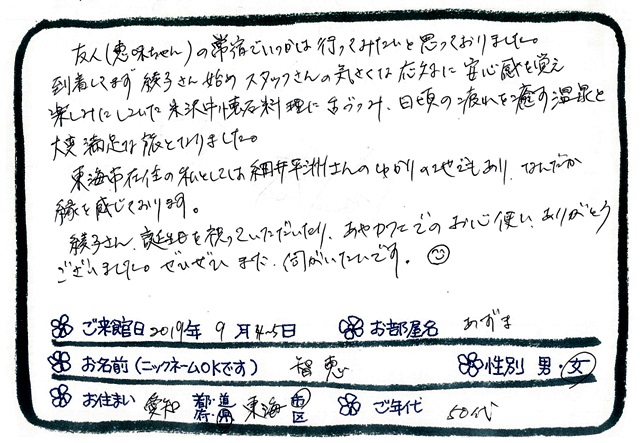 友人(恵味ちゃん)の常宿でいつかは行ってみたいと思っておりました。
到着してまず綾子さん始めスタッフさんの気さくな応対に安心感を覚え
楽しみにしていた米沢牛懐石料理に舌づつみ、日頃の疲れを癒す温泉と
大変満足な旅となりました。
東海市在住の私としては細井平洲さんのゆかりの地でもあり、なんだか
縁を感じております。
綾子さん、誕生日を祝っていただいたり、あやカフェでのお心使い、ありがとう
ございました。ぜひぜひまた、伺がいたいです。
ご来館日 2019年 9月4~5日 お部屋名 あずま
お名前(ニックネームOKです) 智恵 性別 男・女
お住まい 愛知 都・道・府・県 東海 市区 ご年代 50代